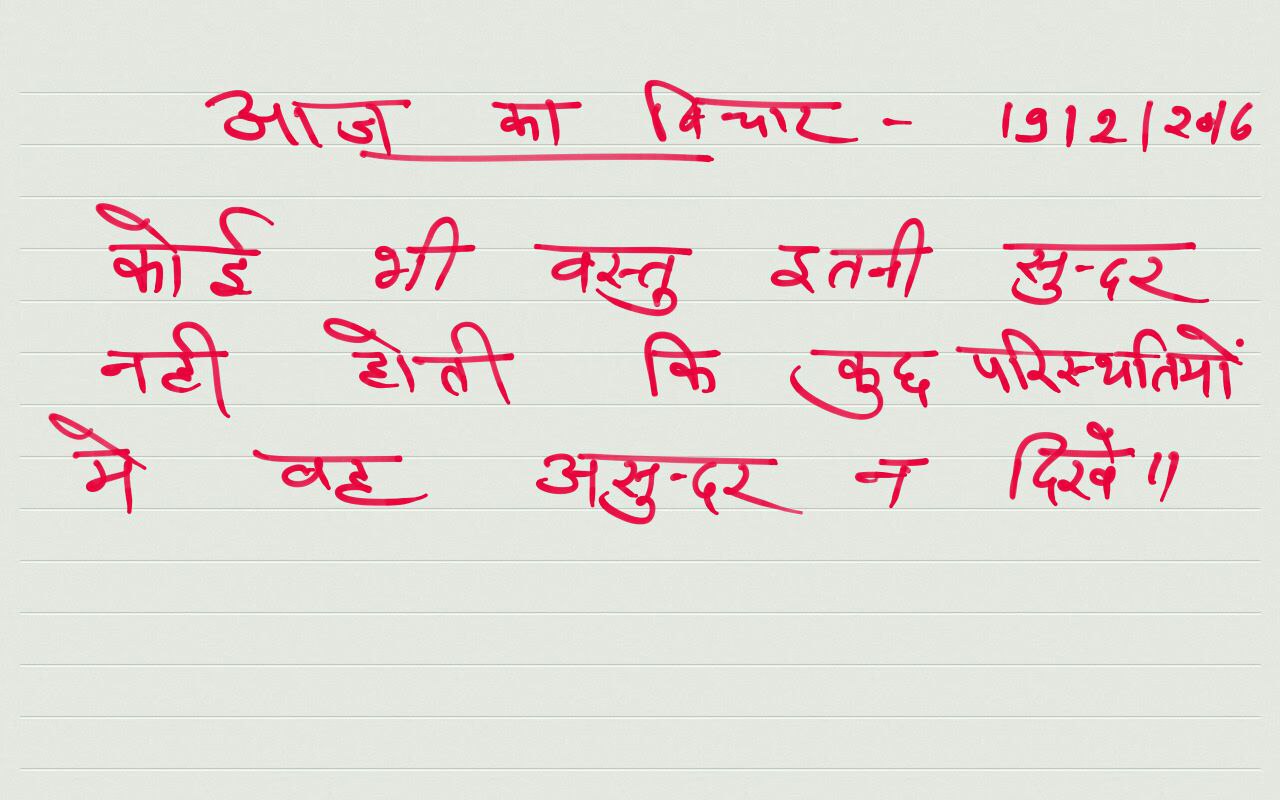 आज का विचार - 19/2/2016
कोई भी वस्तु इतनी सुन्दर
नही होती कि कुछ परिस्थतियों
मे वह असुन्दर न दिखे॥